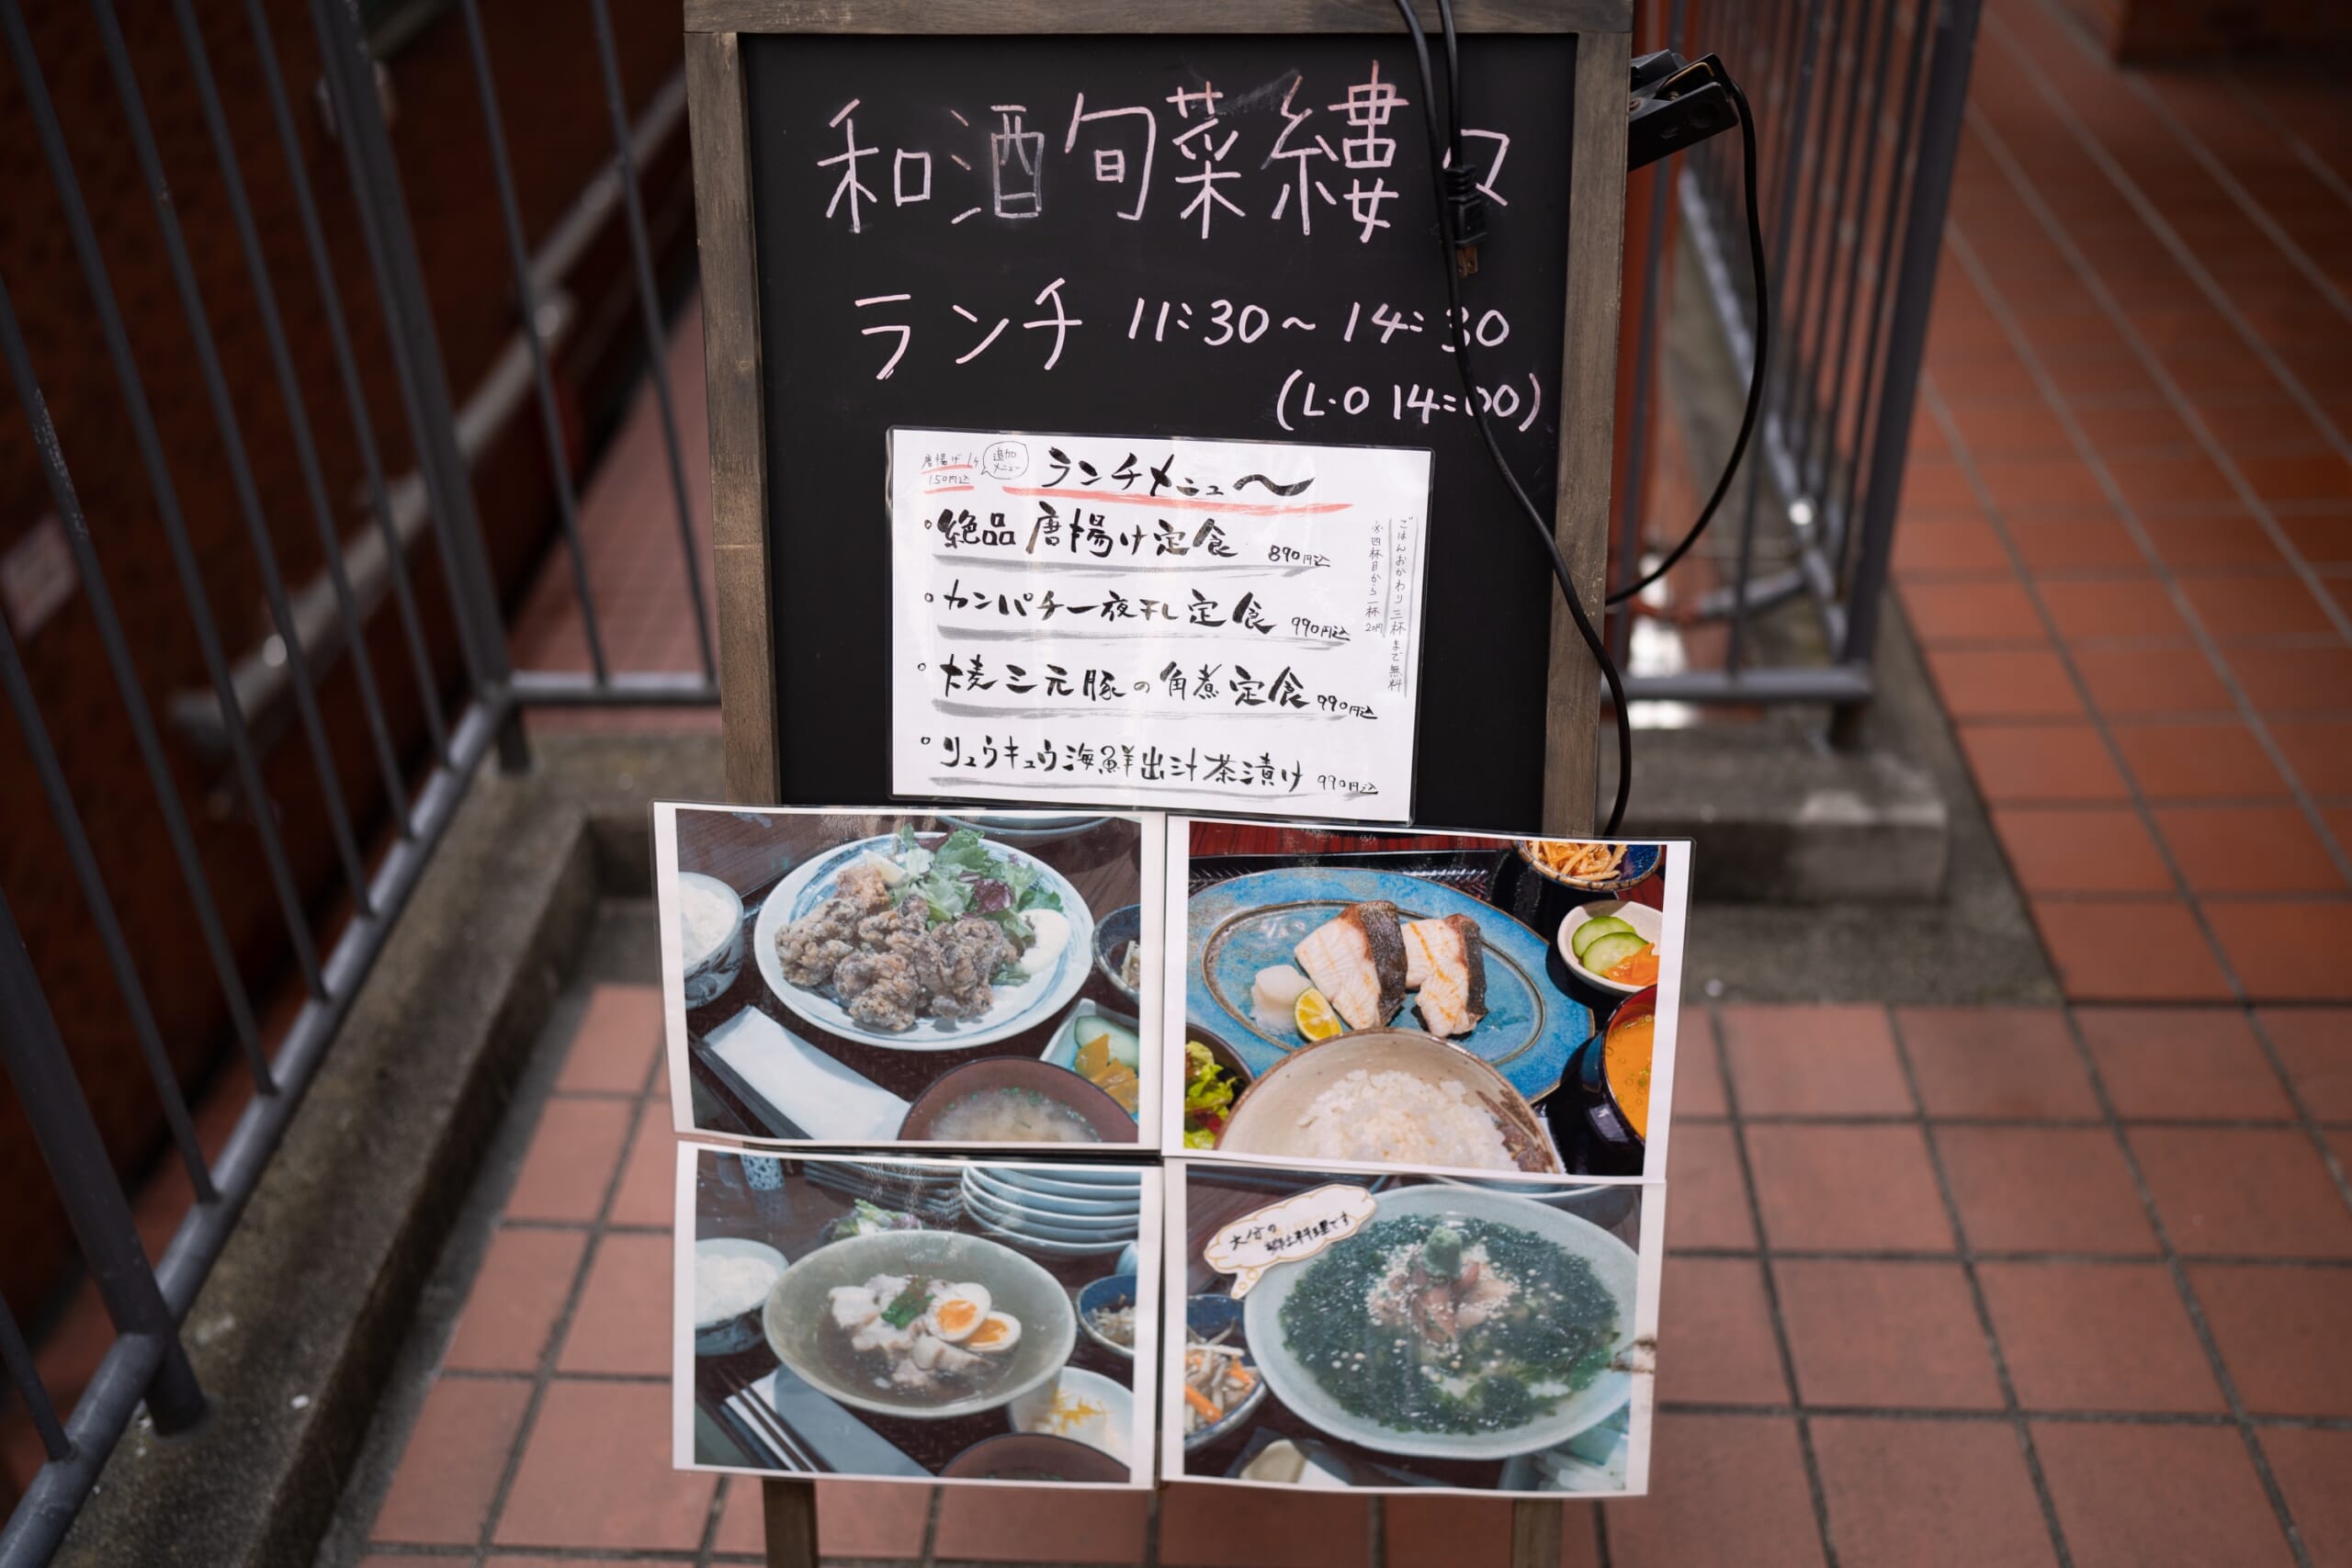 和酒旬菜縷々
ランチ 11:30~14:30
(L.O 14:00)
唐揚げ1ヶ
150円込
追加
メニュー
ランチメニュ〜
・絶品唐揚げ定食 890円込
・カンパチ一夜干し定食 990円込
・大麦三元豚の角煮定食 990円込
・リュウキュウ海鮮出汁茶漬け 990円込
ごはんおかわり三杯まで無料
※四杯目から一杯20円
大分の
郷土料理です